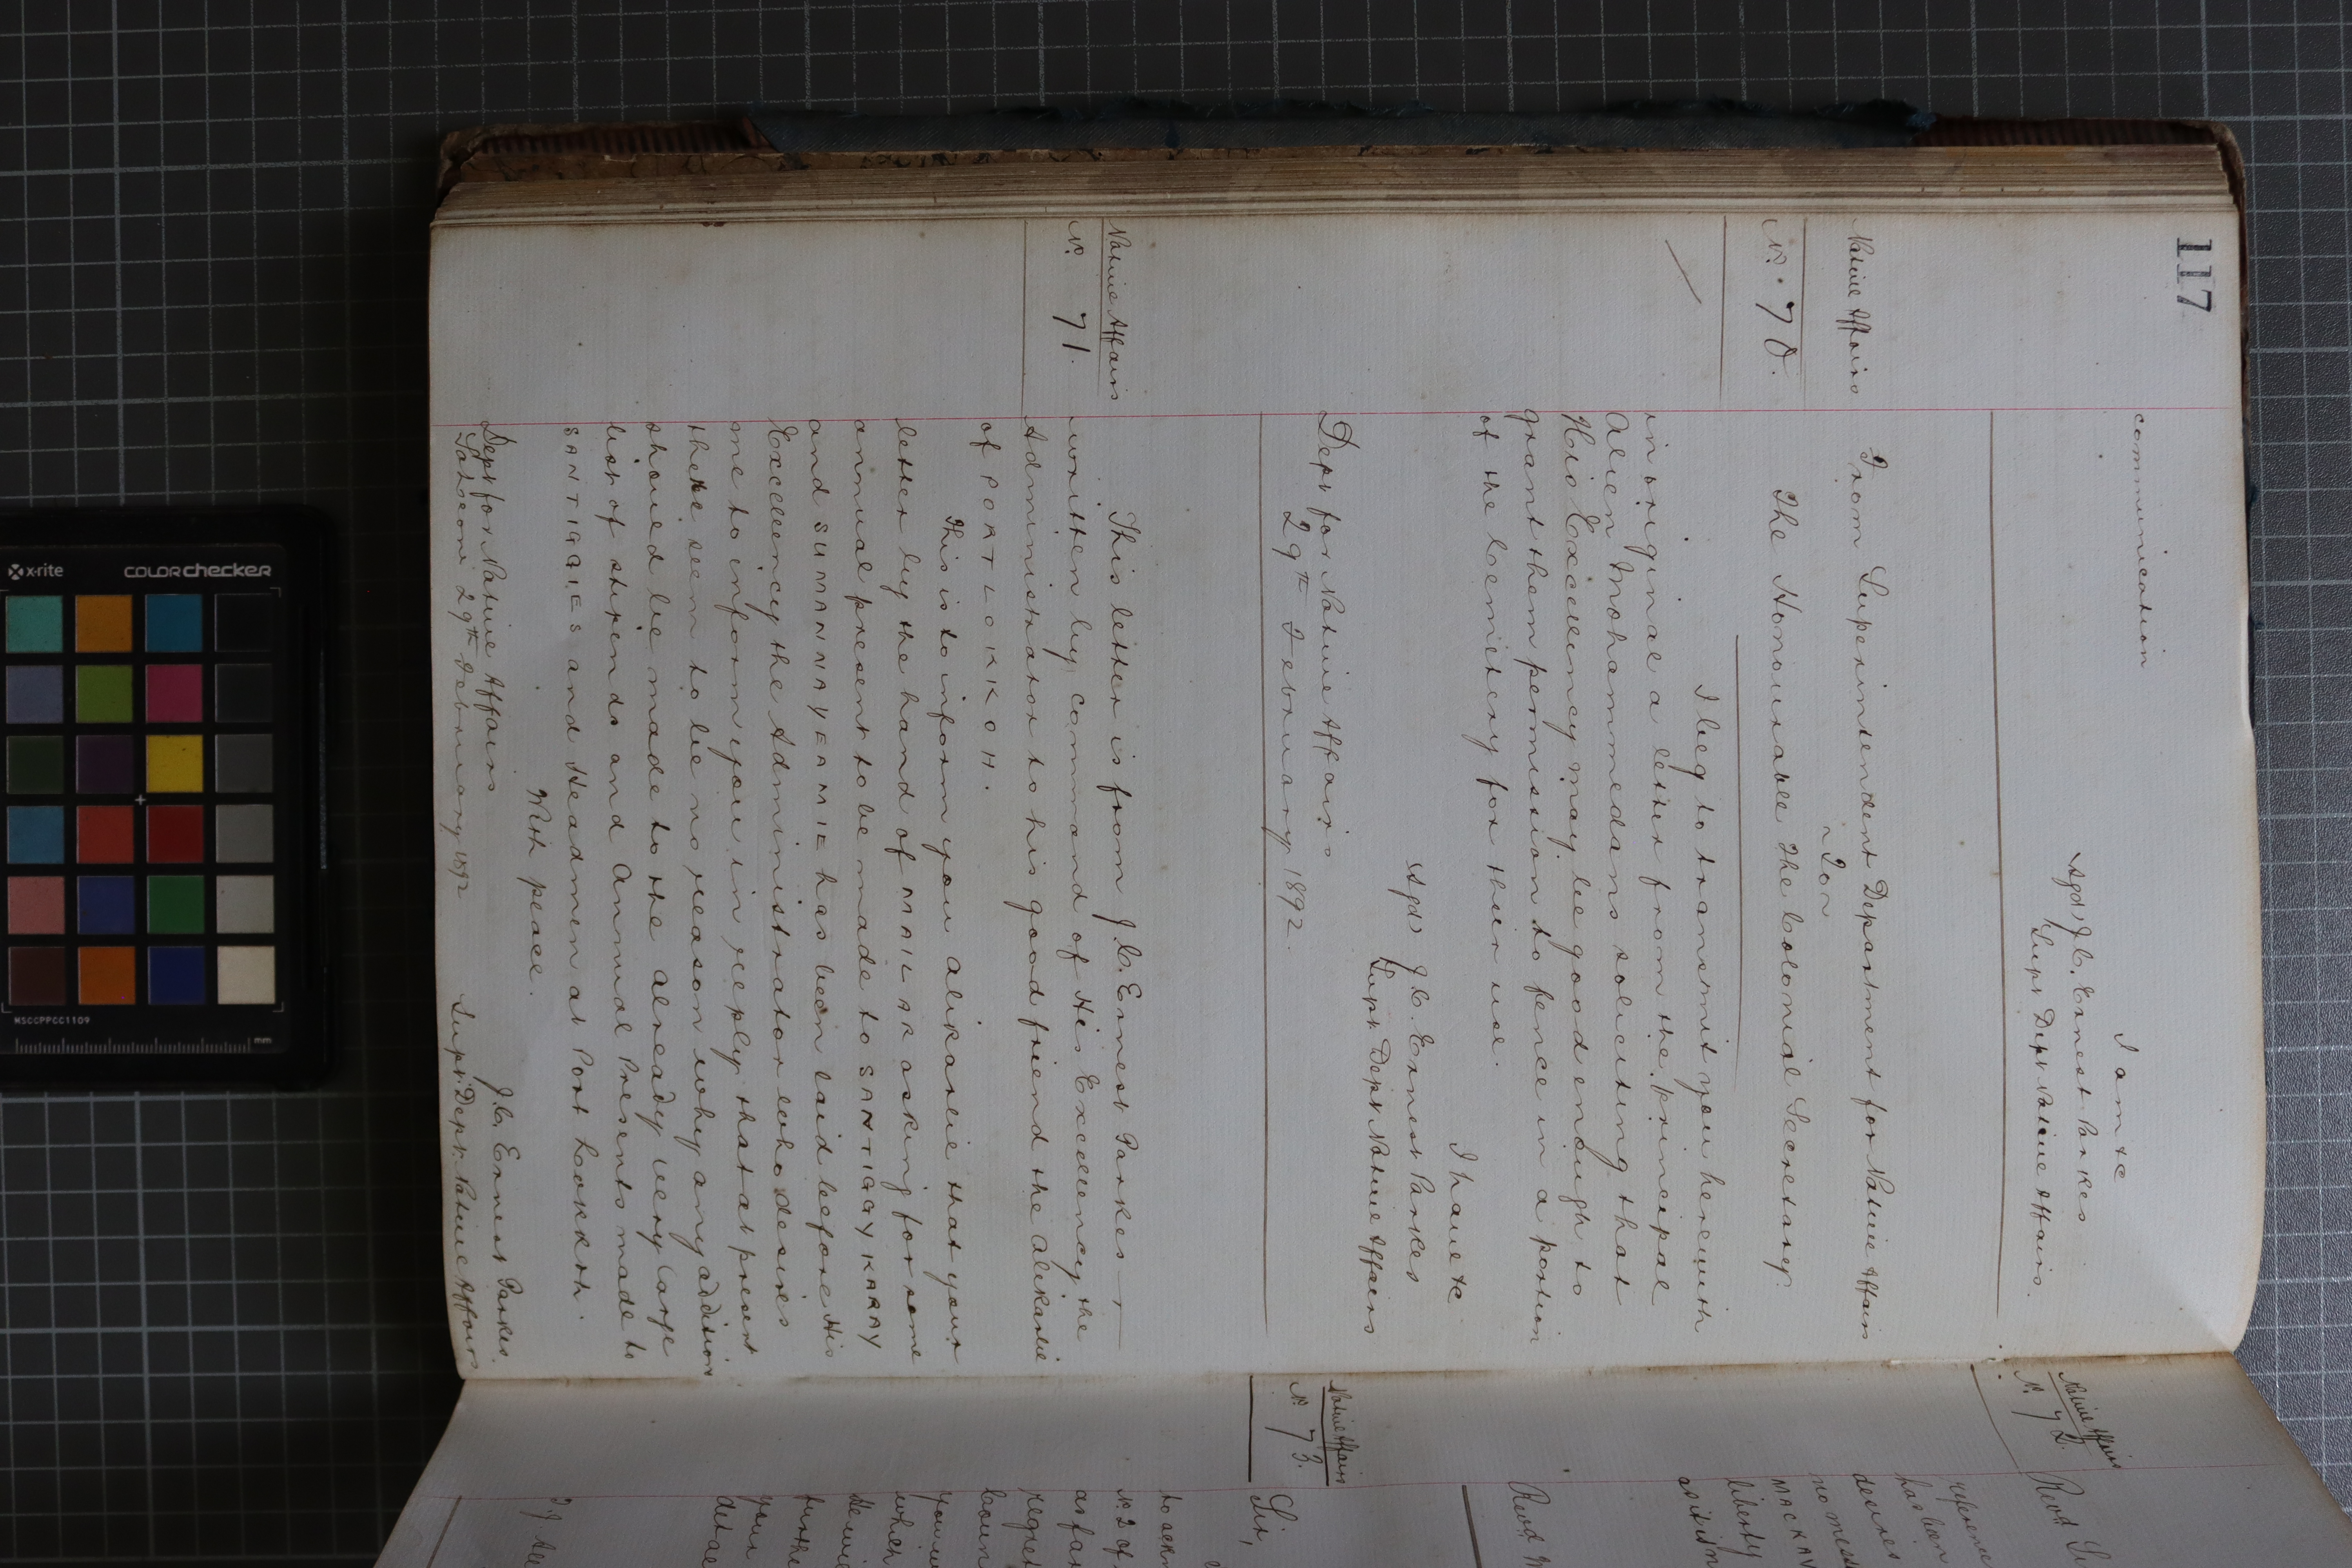 117
communication
I am &c
(Sgd) J. C. Ernest Parkes
Supt Dept Native Affairs.
Native Affairs
No. 70.
From Superintendent Department for Native Affairs
To
The Honourable The Colonial Secretary.
I beg to transmit you herewith
in original a letter from the principal
Alien Mohammedans soliciting that
His Excellency may be good enough to
grant them permission to fence in a portion
of the Cemitery for their use.
I have &c
(Sgd) J. C. Ernest Parkes
Supt Dept Native Affairs
Dept for Native Affairs
29th February 1892.
Native Affairs
No. 71.
This letter is from J. C. Ernest Parkes
written by command of His Excellency the
Administrator to his good friend the Alikarlie
of PORT LOKKOH.
This is to inform you Alikarlie that your
letter by the hand of MALIK asking for some
annual present to be made to SANTIGGY KARAY
and SUMANNAYEAMIE has been laid before His
Excellency the Administrator who desires
me to inform you in reply that at present
there seem to be no reason why any addition
should be made to the already very large
list of stipends and Annual Presents made to
SANTIGGIES and Headmen at Port Lokkoh.
With peace.
J. C. Ernest Parkes.
Dept for Native Affairs
Supt. Dept. Native Affairs
29th February 1892
Native Affairs
No. 72.
Revd
reference
has been
desires
no mess
MACKAY
liberty
as it is m
Revd M
Native Affairs
No. 73.
Sir,
to ackn
No 2 of
as far
regret
boun
you w
which
furthe
your